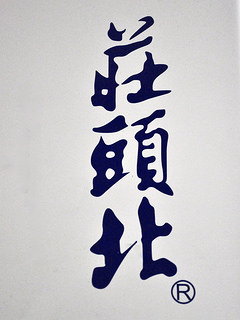 莊頭北®